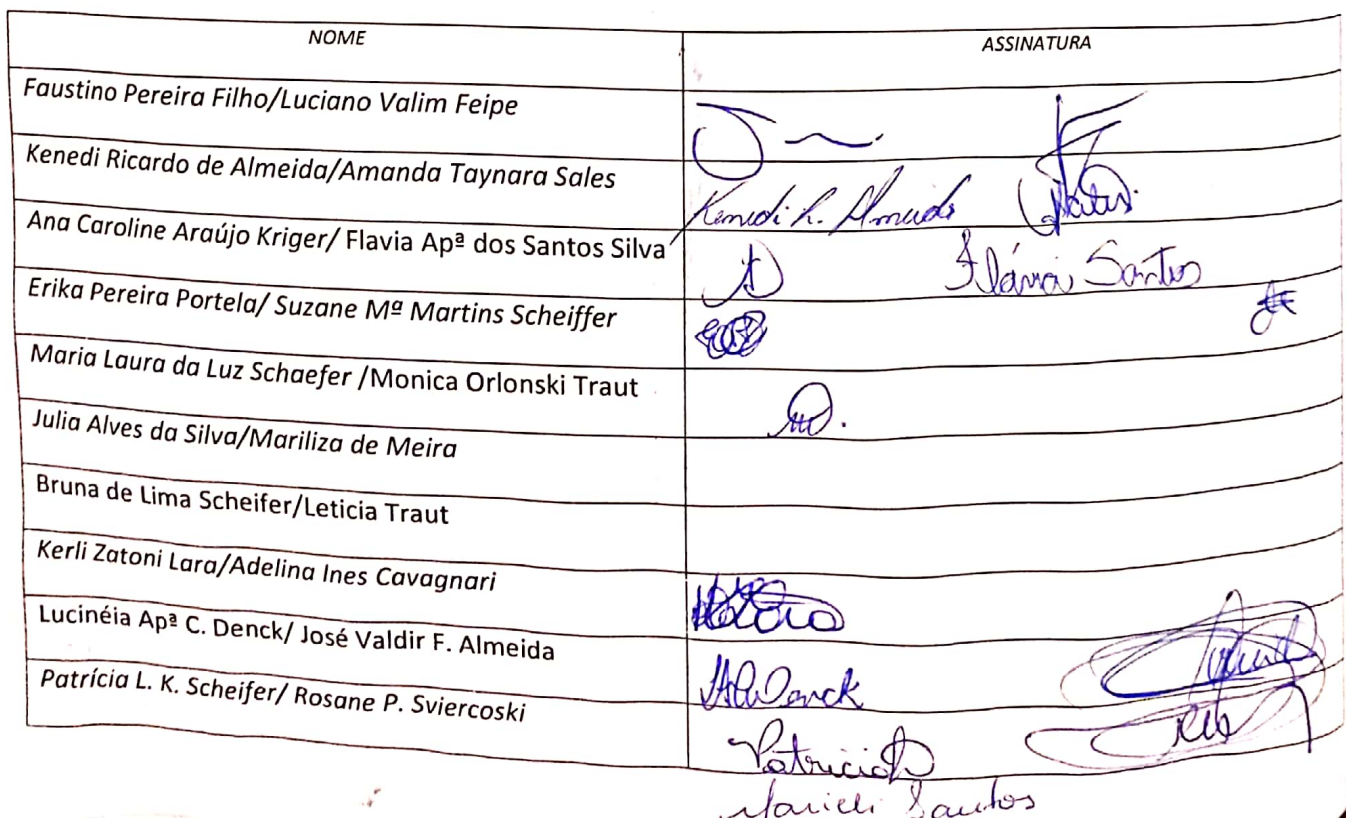 NOME ASSINATURA
Faustino Pereira Filho/Luciano Valim Feipe
Kenedi Ricardo de Almeida/Amanda Taynara Sales
Kenedi R. Almeida
Ana Caroline Araújo Kriger/ Flavia Apª dos Santos Silva
Flávia Santos
Erika Pereira Portela/ Suzane Mª Martins Scheiffer
Maria Laura da Luz Schaefer /Monica Orlonski Traut
Julia Alves da Silva/Mariliza de Meira
Bruna de Lima Scheifer/Leticia Traut
Kerli Zatoni Lara/Adelina Ines Cavagnari
Lucinéia Apª C. Denck/ José Valdir F. Almeida
Denck
Patrícia L. K. Scheifer/ Rosane P. Sviercoski
Patricia
Marieli Santos